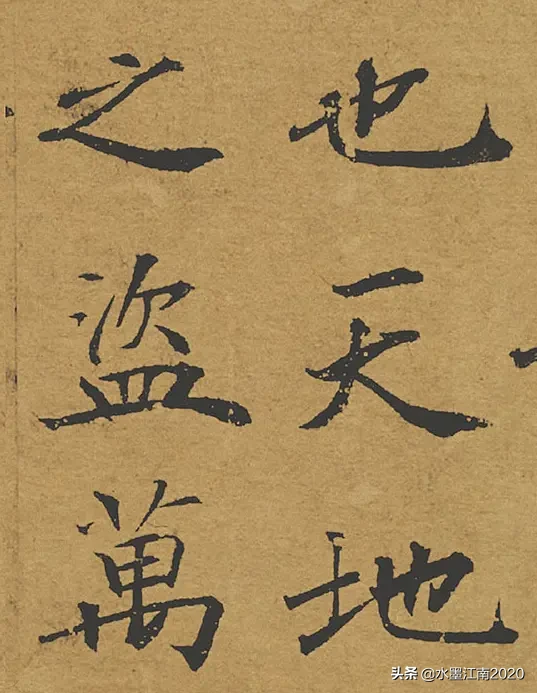 也天地
之盜萬
头条 @水墨江南2020